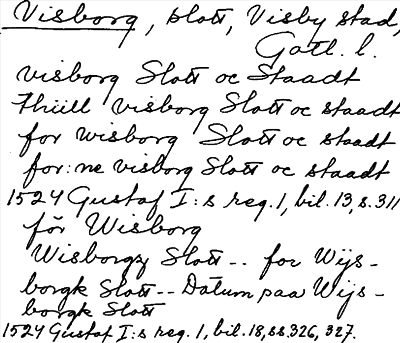 Visborg, slott, Visby stad,
Gotl. l.
visborg Slott oc Staadt
Thiill visborg Slott oc staadt
for wisborg Slott oc staadt
for:ne visborg Slott oc staadt
1524 Gustaf I:s reg. 1, bil. 13, s. 311
för Wisborg
Wisborgz Slott -- for Wijs-
borgk Slott -- Datum paa Wijs-
borgk Slott
1524 Gustaf I:s reg. 1, bil. 18, ss. 326, 327.